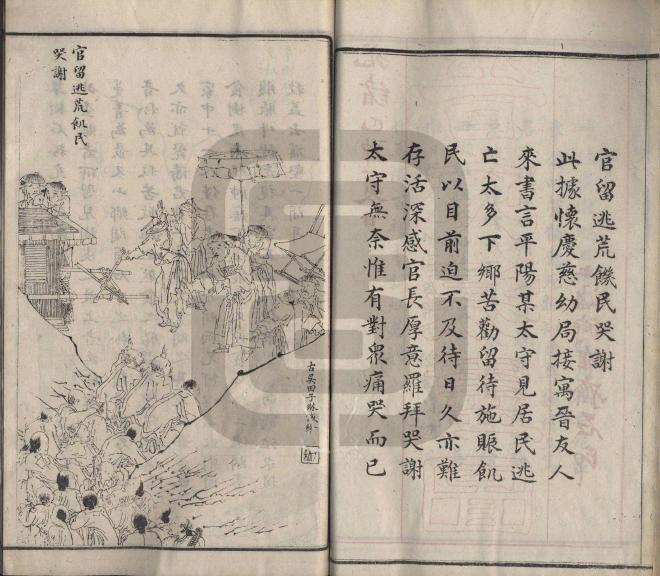 官留逃荒饑民哭謝
此據懷慶慈幼局接寓晉友人
來書言平陽某太守見居民逃
亡太多下鄉苦勸留待施賑飢
民以目前迫不及待日久亦難
存活深感官長厚意羅拜哭謝
太守無奈惟有對眾痛哭而已
官留逃荒飢民
哭謝
古吳田子琳